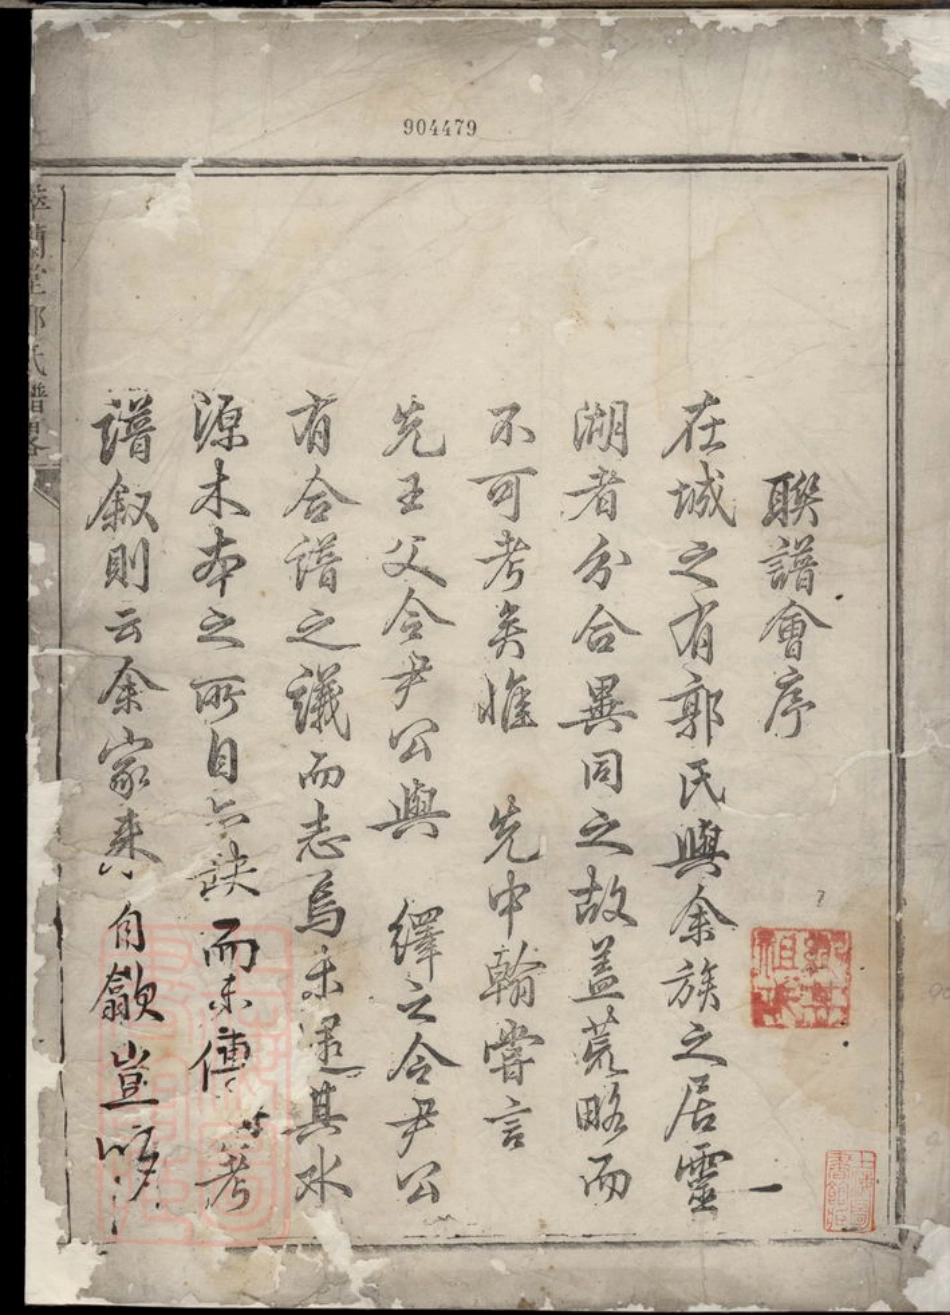 904479
聯譜會序
在城之有郭氏與余族之居靈
湖者分合異同之故蓋荒略而
不可考矣惟 先中翰嘗言
先王父令尹公與 繹之令尹公
有合譜之議而志焉未逮其水
源木本之所自 缺而未傳 考
譜叙則云余家來 自歙豈
堂郭氏譜畧